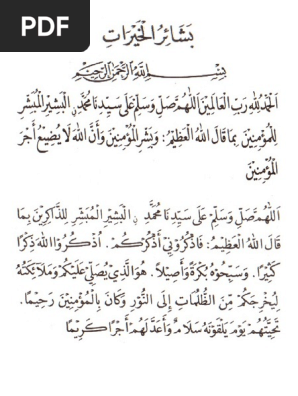 PDF
بَشَائِرُ الْخَيْرَاتِ
بِسْمِ اللهِ الرَّحْمٰنِ الرَّحِيْمِ
اَلْحَمْدُ لِلّٰهِ رَبِّ الْعَالَمِيْنَ اَللّٰهُمَّ صَلِّ وَسَلِّمْ عَلَى سَيِّدِنَا مُحَمَّدِ ۨ الْبَشِيْرِ الْمُبَشِّرِ
لِلْمُؤْمِنِيْنَ بِمَا قَالَ اللهُ الْعَظِيْمُ: وَبَشِّرِ الْمُؤْمِنِيْنَ وَأَنَّ اللهَ لَا يُضِيْعُ أَجْرَ
الْمُؤْمِنِيْنَ
اَللّٰهُمَّ صَلِّ وَسَلِّمْ عَلَى سَيِّدِنَا مُحَمَّدِ ۨ الْبَشِيْرِ الْمُبَشِّرِ لِلذَّاكِرِيْنَ بِمَا
قَالَ اللهُ الْعَظِيْمُ: فَاذْكُرُوْنِي أَذْكُرْكُمْ. اُذْكُرُوا اللهَ ذِكْرًا
كَثِيْرًا. وَسَبِّحُوْهُ بُكْرَةً وَأَصِيْلًا. هُوَ الَّذِيْ يُصَلِّيْ عَلَيْكُمْ وَمَلَائِكَتُهُ
لِيُخْرِجَكُمْ مِنَ الظُّلُمَاتِ إِلَى النُّوْرِ وَكَانَ بِالْمُؤْمِنِيْنَ رَحِيْمًا.
تَحِيَّتُهُمْ يَوْمَ يَلْقَوْنَهُ سَلَامٌ وَأَعَدَّ لَهُمْ أَجْرًا كَرِيْمًا